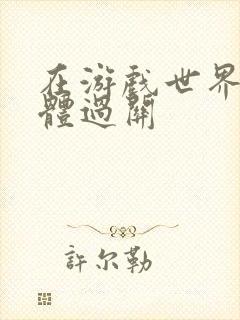 在游戏世界
體過關
許尔勒